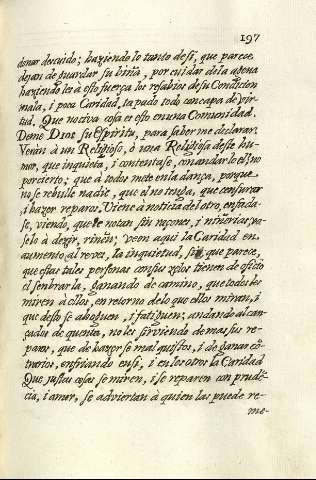 197
donar descuido; haziendolo tanto desi, que parece,
dejan de guardar su biña, por cuidar dela agena
haziendoles à esto fuerça los resabios desu Condicion
mala, i poca Caridad, tapado todo con capa de vir-
tud. Que nociva cosa es esto en una Comunidad.
Deme Dios su Espiritu, para saberme declarar.
Verán à un Religioso, ò una Religiosa deste hu-
mor, que inquieta, i contentase, con andar lo él; no
por cierto; que à todos mete en la dança, porque
no se rebulle nadie, que él no tenga, que censurar
i hazer reparos. Viene à noticia del otro, enfada-
se, viendo, que le notan sin raçones, i niñerias; va-
selo à dezir, riñen; vem aqui la Caridad en
aumento, al reves, la inquietud, si que parece,
que estas tales personas con sus zelos tienen de oficio
el sembrarla, ganando de camino, que todos les
miren à ellos, en retorno delo que ellos miran, i
que desto se ahoguen, i fatiguen; andando alcan-
çados de quenta, no les sirviendo de mas sus re-
paros, que de hazerse mal quistos, i de ganar cõ-
trarios, enfriando en si, i en los otros la Caridad
Que justas cosas se miren, i se reparen con prudẽ-
cia, i amor, se adviertan à quien las puede re-
me-